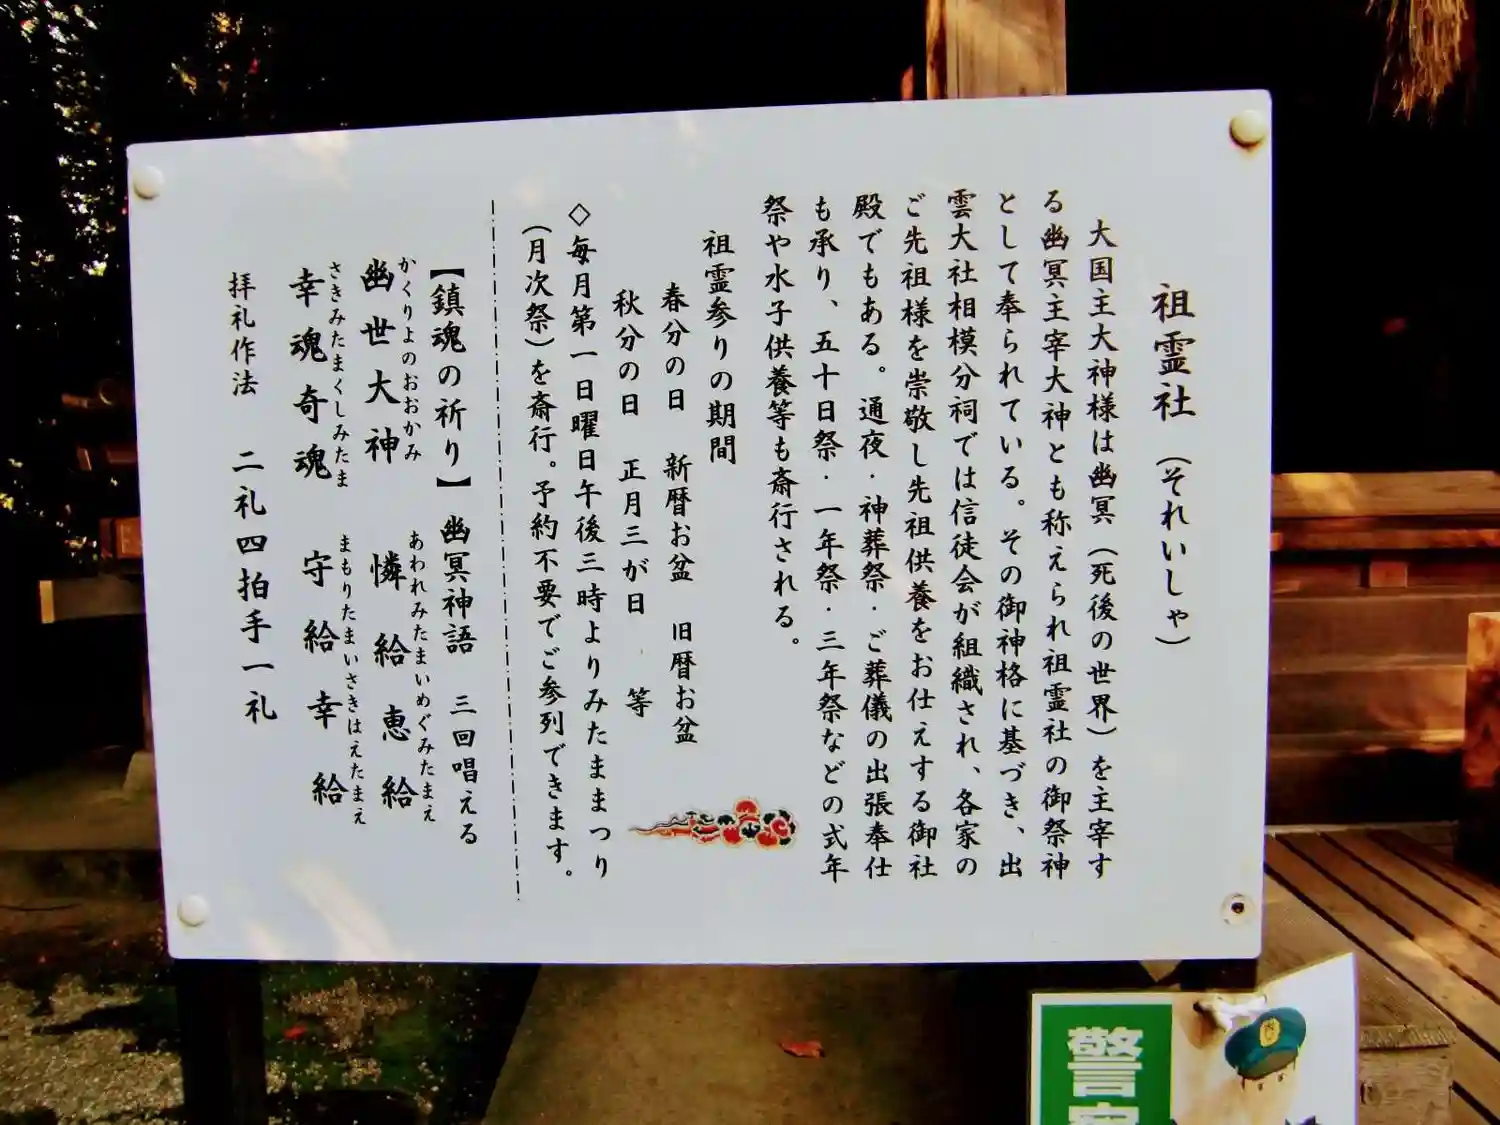 祖霊社（それいしゃ）
大国主大神様は幽冥（死後の世界）を主宰す
る幽冥主宰大神とも称えられ祖霊社の御祭神
として奉られている。その御神格に基づき、出
雲大社相模分祠では信徒会が組織され、各家の
ご先祖様を崇敬し先祖供養をお仕えする御社
殿でもある。通夜・神葬祭・ご葬儀の出張奉仕
も承り、五十日祭・一年祭・三年祭などの式年
祭や水子供養等も斎行される。
祖霊参りの期間
春分の日 新暦お盆 旧暦お盆
秋分の日 正月三が日 等
◇毎月第一日曜日午後三時よりみたままつり
（月次祭）を斎行。予約不要でご参列できます。
【鎮魂の祈り】幽冥神語 三回唱える
かくりよのおおかみ あわれみたまいめぐみたまえ
幽世大神 憐給恵給
さきみたまくしみたま まもりたまいさきはえたまえ
幸魂奇魂 守給幸給
拝礼作法 二礼四拍手一礼
警察